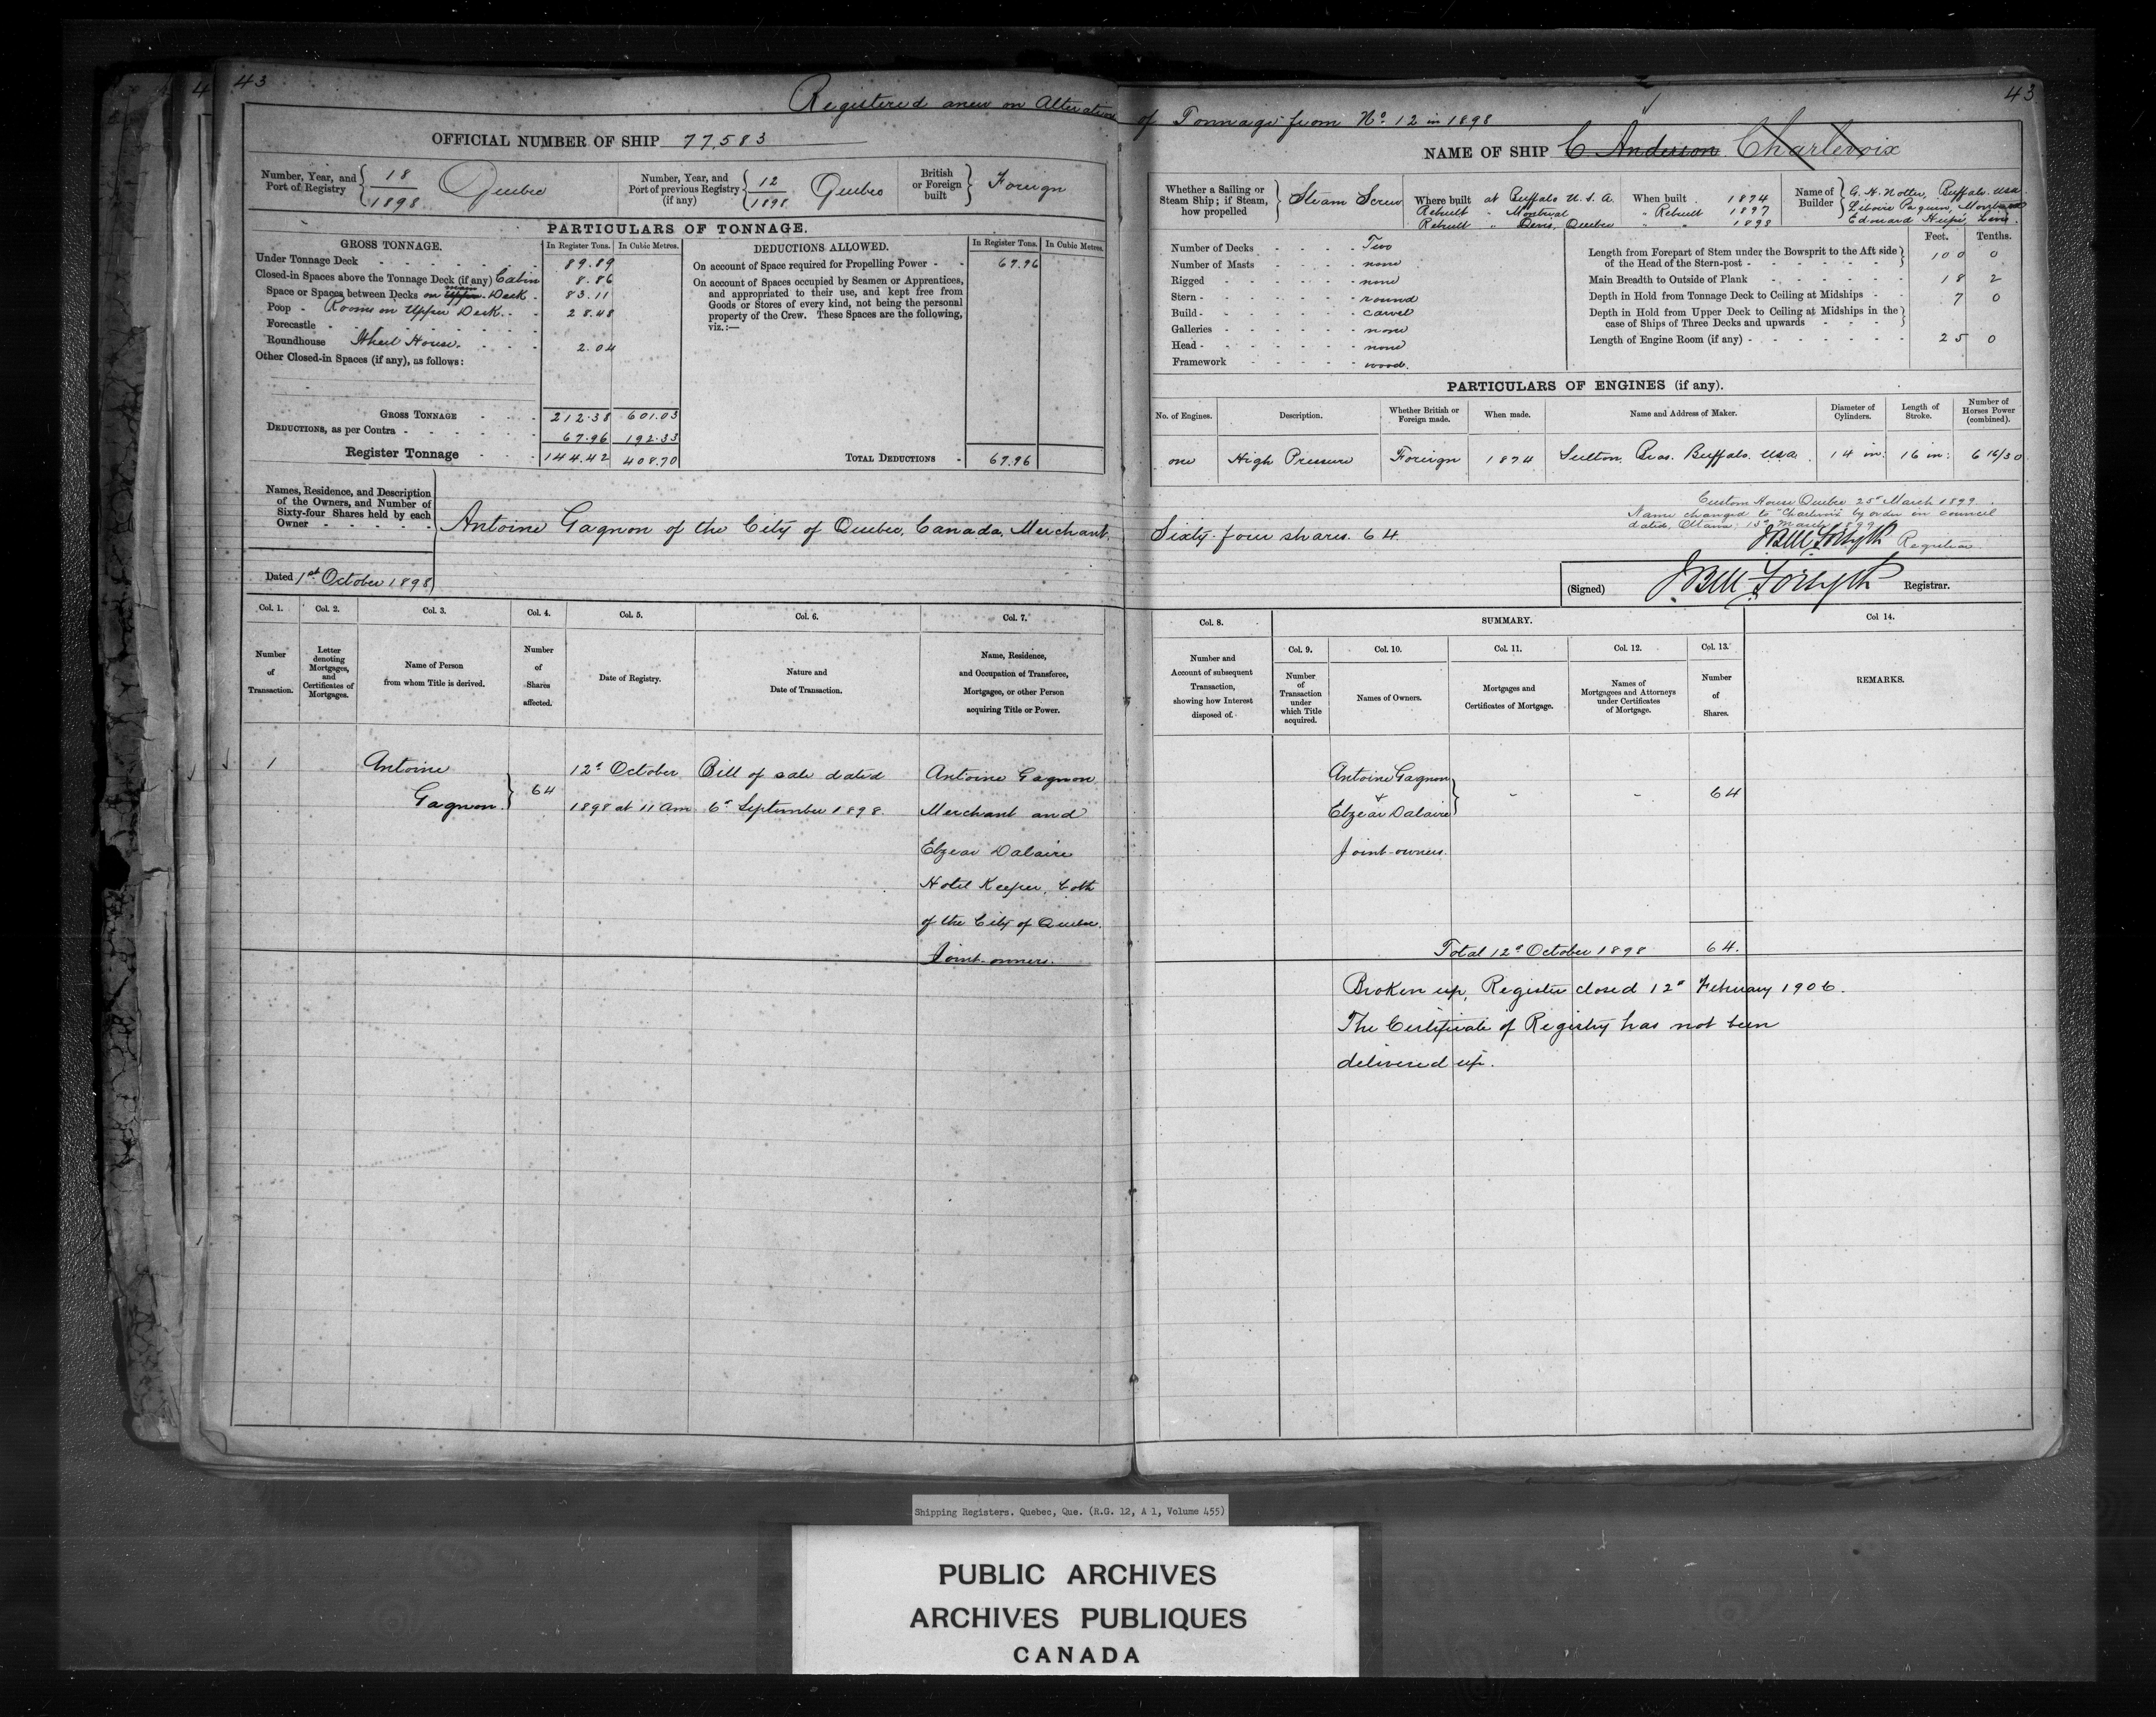 43
4
43
Registered anew on Alteration of Tonnage from No. 12 in 1898
OFFICIAL NUMBER OF SHIP 77,583
Number, Year, and
Port of Registry
18
1898
Quebec
Number, Year, and
Port of previous Registry
(if any)
12
1898
Quebec
British
or Foreign
built
Foreign
PARTICULARS OF TONNAGE.
GROSS TONNAGE. In Register Tons. In Cubic Metres.
Under Tonnage Deck 89.89
Closed-in Spaces above the Tonnage Deck (if any) Cabin 8.86
Space or Spaces between Decks on Upper main Deck 83.11
Poop - Rooms on Upper Deck 28.48
Forecastle
Roundhouse Wheel House. 2.04
Other Closed-in Spaces (if any), as follows:
GROSS TONNAGE 212.38 601.03
DEDUCTIONS, as per Contra 67.96 192.33
Register Tonnage 144.42 408.70
DEDUCTIONS ALLOWED. In Register Tons. In Cubic Metres.
On account of Space required for Propelling Power 67.96
On account of Spaces occupied by Seamen or Apprentices,
and appropriated to their use, and kept free from
Goods or Stores of every kind, not being the personal
property of the Crew. These Spaces are the following,
viz.:—
TOTAL DEDUCTIONS 67.96
Names, Residence, and Description
of the Owners, and Number of
Sixty-four Shares held by each
Owner
Antoine Gagnon of the City of Quebec, Canada, Merchant,
Dated 1st October 1898
Col. 1. Col. 2. Col. 3. Col. 4. Col. 5. Col. 6. Col. 7.
Number
of
Transaction.
Letter
denoting
Mortgages,
and
Certificates of
Mortgages.
Name of Person
from whom Title is derived.
Number
of
Shares
affected.
Date of Registry.
Nature and
Date of Transaction.
Name, Residence,
and Occupation of Transferee,
Mortgagee, or other Person
acquiring Title or Power.
1
Antoine
Gagnon
64
12th October
1898 at 11 am
Bill of sale dated
6th September 1898.
Antoine Gagnon
Merchant and
Elzear Dalaire
Hotel Keeper, both
of the City of Quebec.
Joint-owners.
NAME OF SHIP C Anderson Charlevoix
Whether a Sailing or
Steam Ship; if Steam,
how propelled
Steam Screw
Where built at Buffalo U.S.A.
Rebuilt " Montreal
Rebuilt " Levis, Quebec
When built 1874
" Rebuilt 1897
" " 1898
Name of
Builder
G. H. Notter, Buffalo. usa.
Liboire Paquin,
Edouard
Number of Decks Two
Number of Masts none
Rigged none
Stern round
Build carvel
Galleries none
Head none
Framework wood.
Feet. Tenths.
Length from Forepart of Stem under the Bowsprit to the Aft side
of the Head of the Stern-post 100 0
Main Breadth to Outside of Plank 18 2
Depth in Hold from Tonnage Deck to Ceiling at Midships 7 0
Depth in Hold from Upper Deck to Ceiling at Midships in the
case of Ships of Three Decks and upwards
Length of Engine Room (if any) 25 0
PARTICULARS OF ENGINES (if any).
No. of Engines.
Description.
Whether British or
Foreign made.
When made.
Name and Address of Maker.
Diameter of
Cylinders.
Length of
Stroke.
Number of
Horses Power
(combined).
one High Pressure Foreign 1874 Sutton Bros. Buffalo. usa. 14 in: 16 in: 6 16/30
Custom House Quebec 25th March 1899
Name changed to "Charlevoix" by order in council
dated, Ottawa 15th March 1899
JBM Forsyth Registrar
Sixty-four shares. 64.
(Signed) JBM Forsyth Registrar.
Col. 8. SUMMARY. Col 14.
Col. 9. Col. 10. Col. 11. Col. 12. Col. 13.
Number and
Account of subsequent
Transaction,
showing how Interest
disposed of.
Number
of
Transaction
under
which Title
acquired.
Names of Owners.
Mortgages and
Certificates of Mortgage.
Names of
Mortgagees and Attorneys
under Certificates
of Mortgage.
Number
of
Shares.
REMARKS.
Antoine Gagnon
+
Elzear Dalaire
Joint-owners.
- - 64
Total 12th October 1898 64.
Broken up, Register closed 12th February 1906.
The Certificate of Registry has not been
delivered up.
Shipping Registers. Quebec, Que. (R.G. 12, A 1, Volume 455)
PUBLIC ARCHIVES
ARCHIVES PUBLIQUES
CANADA